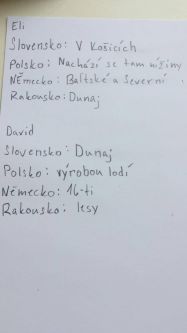 Eli
Slovensko: V Košicích
Polsko: Nachází se tam nížiny
Německo: Baltské a Severní
Rakousko: Dunaj
David
Slovensko: Dunaj
Polsko: výrobou lodí
Německo: 16-ti
Rakousko: lesy